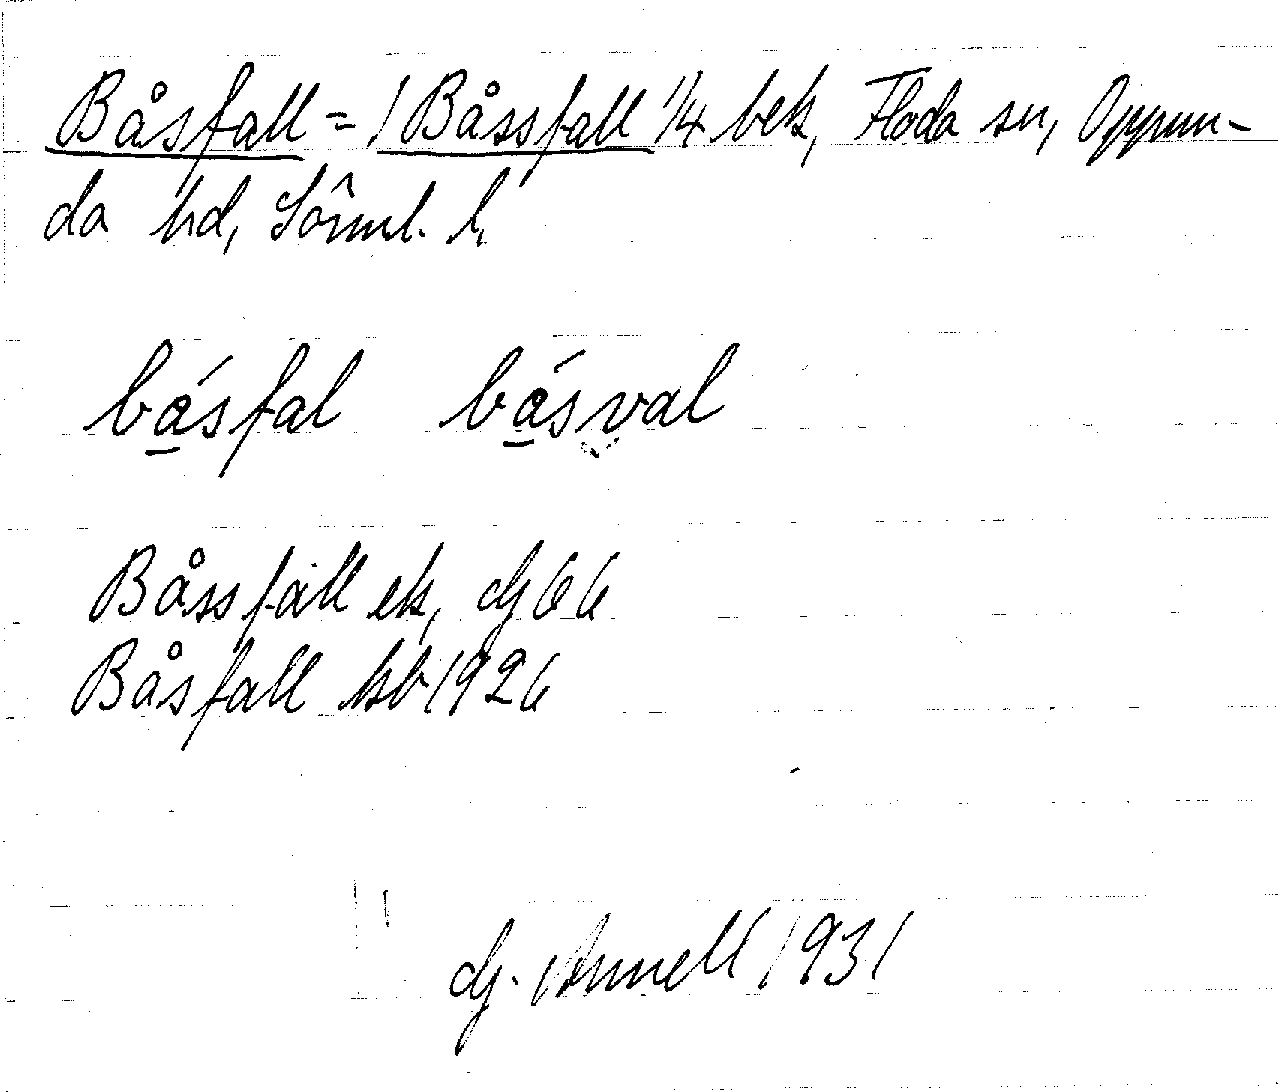 Båsfall = 1 Båssfall 1/4 bek, Floda sn, Oppun-
da hd, Sörml. l.
básfal básval
Båssfall ek, Gj 66
Båsfall kb 1926
G. Annell 1931